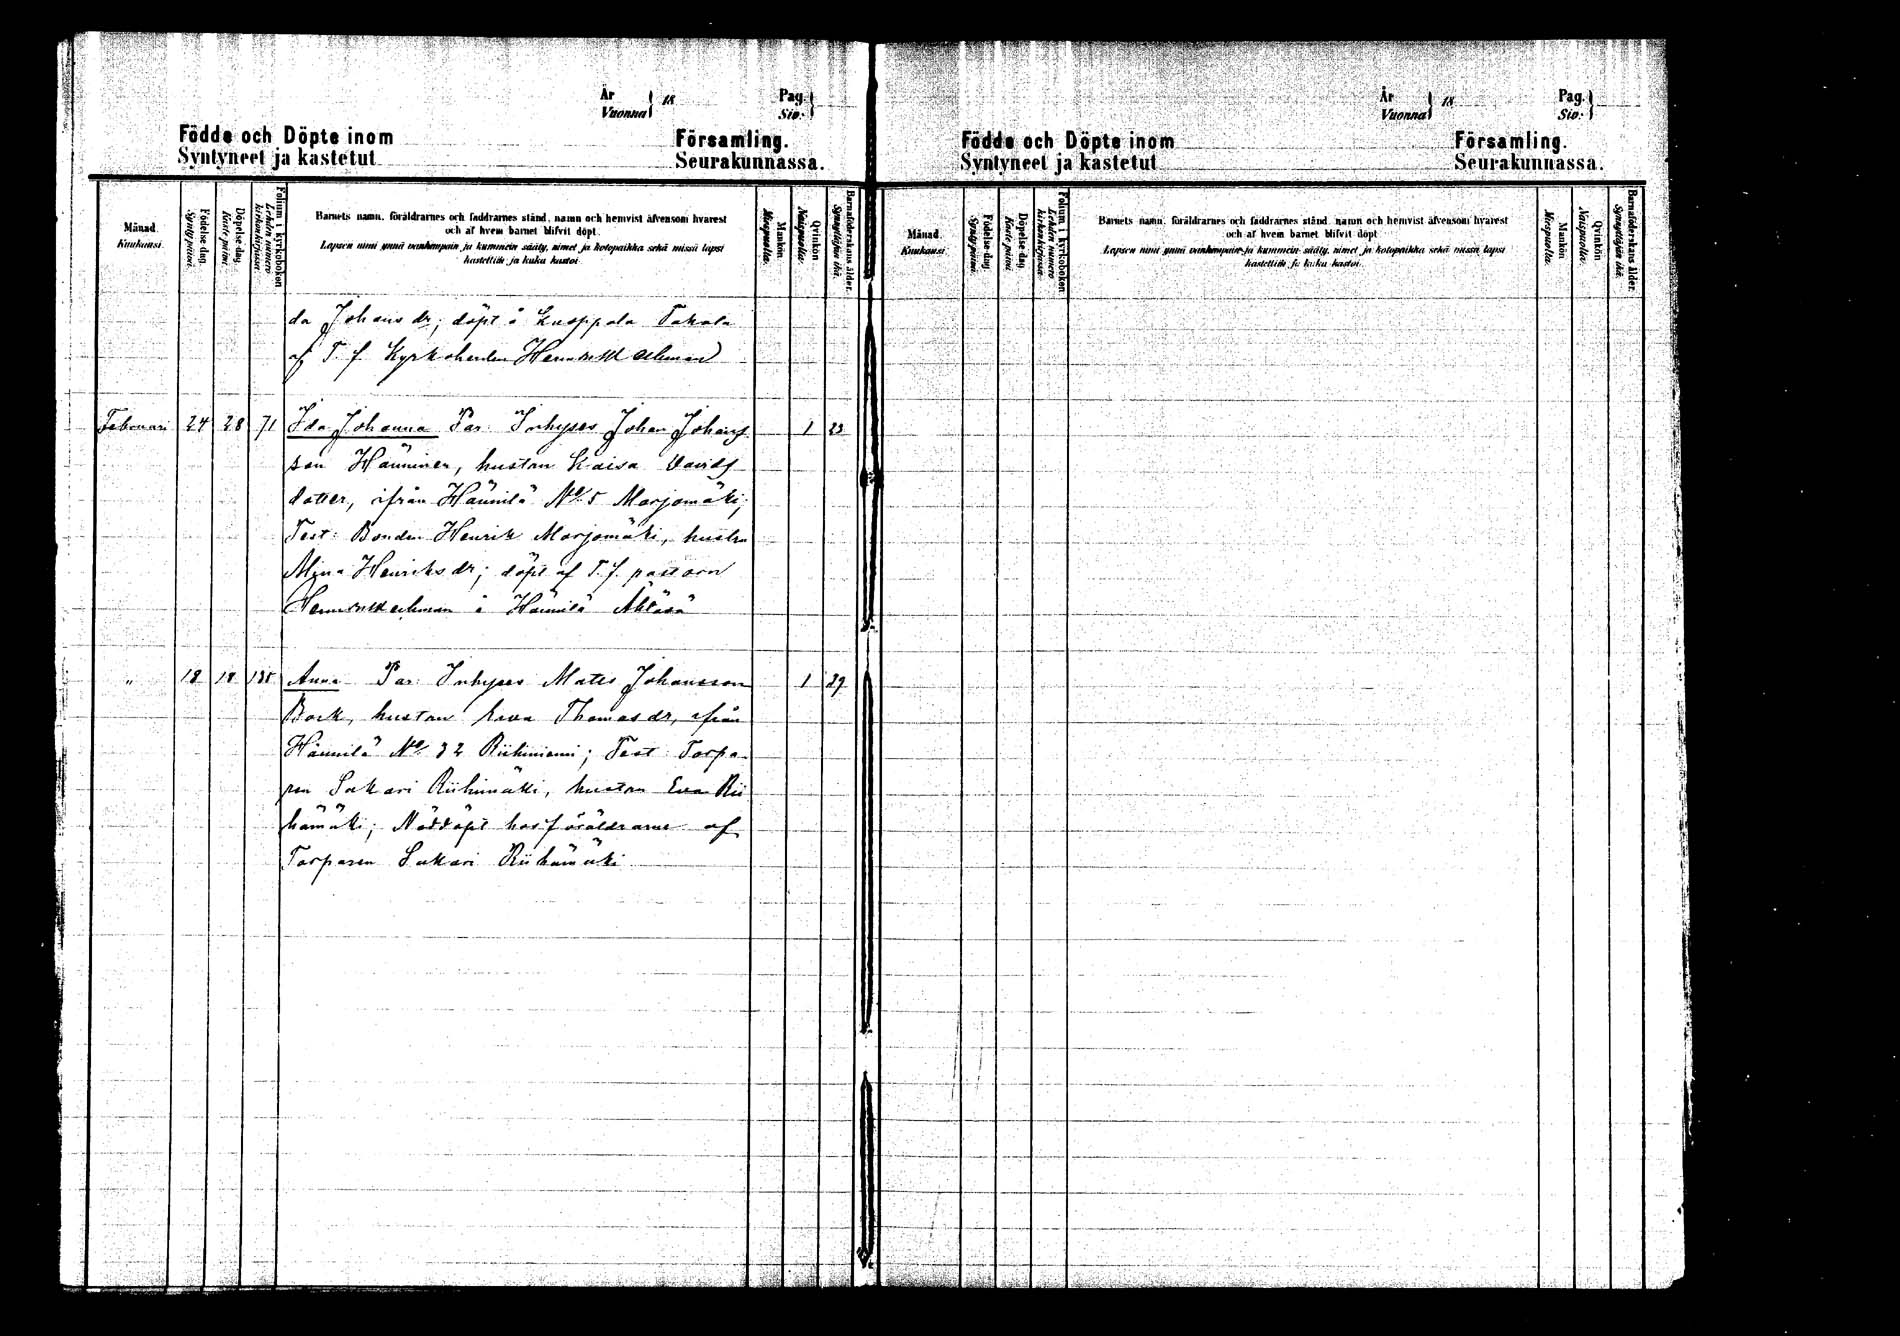 År
Vuonna } 18
Pag.
Siv. }
Födde och Döpte inom Församling.
Syntyneet ja kastetut Seurakunnassa.
Månad.
Kuukausi.
Födelse-dag.
Synty-päivä.
Döpelse-dag.
Kaste-päivä.
Folium i kyrkoboken
Lehden numero
kirkonkirjassa.
Barnets namn, föräldrarnes och faddrarnes stånd, namn och hemvist äfvensom hvarest
och af hvem barnet blifvit döpt.
Lapsen nimi ynnä vanhempain ja kummein sääty, nimet ja kotopaikka sekä missä lapsi
kastettiin ja kuka kastoi.
Mankön
Miespuolta.
Qvinkön
Naispuolta.
Barnaföderskans ålder.
Synnyttäjän ikä.
da Johans dr; döpt å Kuoppala Takala
af T. f. Kyrkoherden
Februari 24 28 71 Ida Johanna Par. Inhyses Johan Johans
son Hänninen, hustrun Kaisa Davids
dotter, ifrån Hännilä No 5 Marjomäki;
Test: Bonden Henrik Marjomäki, hustru
Mina Henriks dr; döpt af T. f. pastorn
å Hännilä Ahlåsä
" 18 18 135 Anna Par: Inhyses Mats Johansson
1 23
1 29
hustrun Thomas dr, ifrån
Hännilä No 32 Riihiniemi; Test: Torpa
ren Sakari Riihimäki, hustrun Eva Rii
hämäki; Nöddöpt hos föräldrarne af
Torparen Sakari Riihämäki
År
Vuonna } 18
Pag.
Siv. }
Födde och Döpte inom Församling.
Syntyneet ja kastetut Seurakunnassa.
Månad.
Kuukausi.
Födelse-dag
Synty-päivä.
Döpelse-dag
Kaste-päivä.
Folium i kyrkoboken.
Lehden numero
kirkonkirjassa.
Barnets namn, föräldrarnes och faddrarnes stånd, namn och hemvist äfvensom hvarest
och af hvem barnet blifvit döpt
Lapsen nimi ynnä vanhempain ja kummein sääty, nimet ja kotopaikka sekä missä lapsi
kastettiin ja kuka kastoi.
Mankön
Miespuolta.
Qvinkön
Naispuolta.
Barnaföderskans ålder.
Synnyttäjän ikä.